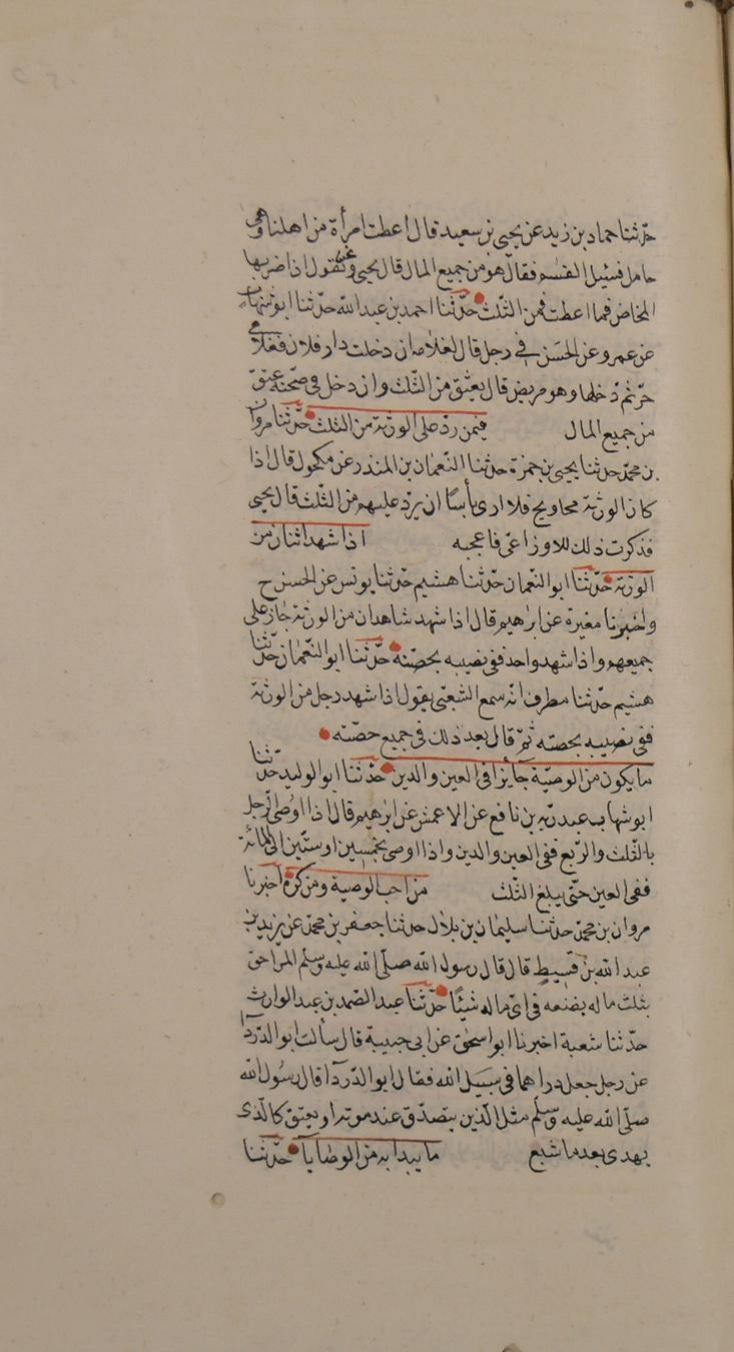 حدثنا حماد بن زيد عن يحيى بن سعيد قال اعطت امرأة من اهلنا وهى
حامل فسئل القسم فقال هو من جميع المال قال يحيى ونحن نقول اذا ضربها
المخاض فما اعطت فمن الثلث حدثنا احمد بن عبد الله حدثنا ابو شهاب
عن عمرو عن الحسن في رجل قال لغلامه ان دخلت دار فلان فغلامى
حر ثم دخلها وهو مريض قال يعتق من الثلث وان دخل في صحته عتق
من جميع المال فيمن رد على الورثة من الثلث حدثنا مروان
بن محمد حدثنا يحيى بن حمزة حدثنا النعمان بن المنذر عن مكحول قال اذا
كان الورثة محاويج فلا ارى بأسا ان يرد عليهم من الثلث قال يحيى
فذكرت ذلك للاوزاعى فاعجبه اذا شهد اثنان من
الورثة حدثنا ابو النعمان حدثنا هشيم حدثنا يونس عن الحسن ح
واخبرنا مغيرة عن ابرهيم قال اذا شهد شاهدان من الورثة جاز على
جميعهم واذا شهد واحد ففى نصيبه بحصته حدثنا ابو النعمان حدثنا
هشيم حدثنا مطرف انه سمع الشعبى يقول اذا شهد رجل من الورثة
ففى نصيبه بحصته ثم قال بعد ذلك فى جميع حصته
ما يكون من الوصية جآيزا فى العين والدين حدثنا ابو الوليد حدثنا
ابو شهاب عبد ربه بن نافع عن الاعمش عن ابرهيم قال اذا اوصى الرجل
بالثلث والربع ففى العين والدين واذا اوصى بخمسين او ستين الى المائة
ففى العين حتى يبلغ الثلث من احب الوصية ومن كره اخبرنا
مروان بن محمد حدثنا سليمان بن بلال حدثنا جعفر بن محمد عن يزيد بن
عبد الله بن قسيط قال قال رسول الله صلى الله عليه وسلم المرا حق
بثلث ماله يضعه فى اى ماله شيئا حدثنا عبد الصمد بن عبد الوارث
حدثنا شعبة اخبرنا ابو اسحق عن ابى حبيبة قال سألت ابو الدردآ
عن رجل جعل دراهما فى سبيل الله فقال ابو الدردآ قال رسول الله
صلى الله عليه وسلم مثل الذين يتصدق عند موته او يعتق كالذى
يهدى بعد ما شبع ما يبدا به من الوصايا حدثنا